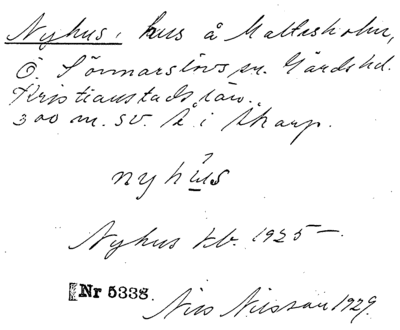 Nyhus, hus å Maltesholm,
Ö. Sönnarslövs sn. Gärds hd.
Kristianstads län.
300 m. sv. k. i tharp.
nyhus
Nyhus kb. 1925—.
Nr 5338.
Nils Nilsson 1929.